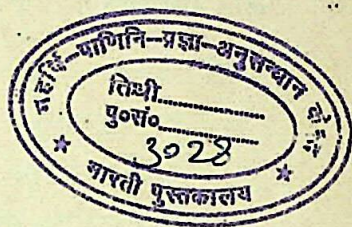 महर्षि-पाणिनि-प्रज्ञा-अनुसन्धान
तिथी..............
पु०सं०..............
3028
भारती पुस्तकालय